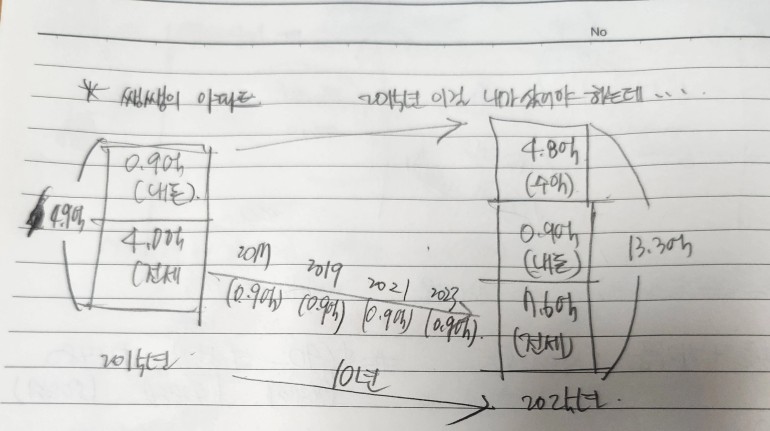 No
* 쌤쌤이 아파트 2015년 이걸 내가 샀어야 하는데 .....
0.9억
(내돈).
4.9억
4.0억
(전세
2017 2019 2021 2023
(0.9억) (0.9억) (0.9억) (0.9억).
4.8억
(수익)
0.9억
(내돈)
7.6억
(전세)
13.3억
2015년
10년
2025년.